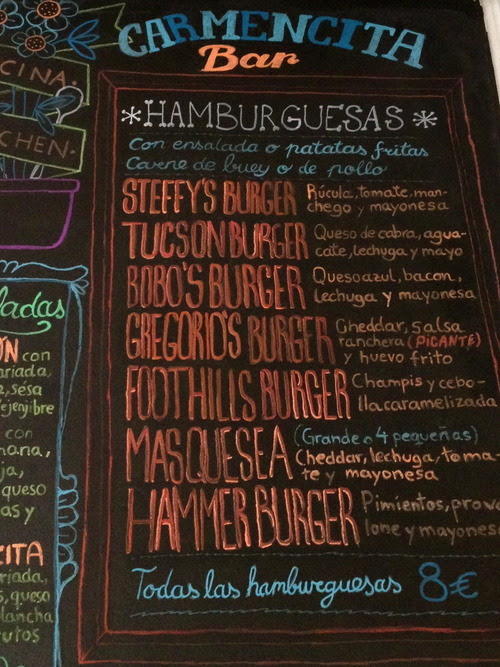 CARMENCITA
Bar
CINA.
CHEN.
*HAMBURGUESAS*
Con ensalada o patatas fritas
Carne de buey o de pollo
STEFFY'S BURGER Rúcula, tomate, man-
chego y mayonesa
TUCSON BURGER Queso de cabra, agua-
cate, lechuga y mayo
BOBO'S BURGER Queso azul, bacon,
lechuga y mayonesa
GREGORIO'S BURGER Cheddar, salsa
ranchera (PICANTE)
y huevo frito
FOOTHILLS BURGER Champis y cebo-
lla caramelizada
MASQUESEA (Grande o 4 pequeñas)
Cheddar, lechuga, toma-
te y mayonesa
HAMMER BURGER Pimientos, provo
lone y mayones
Todas las hamburguesas 8€
ladas
ÓN con
ariada,
sésa
ejenjibre
con
ja,
queso
as y
CITA
riada,
queso
lancha
rutos